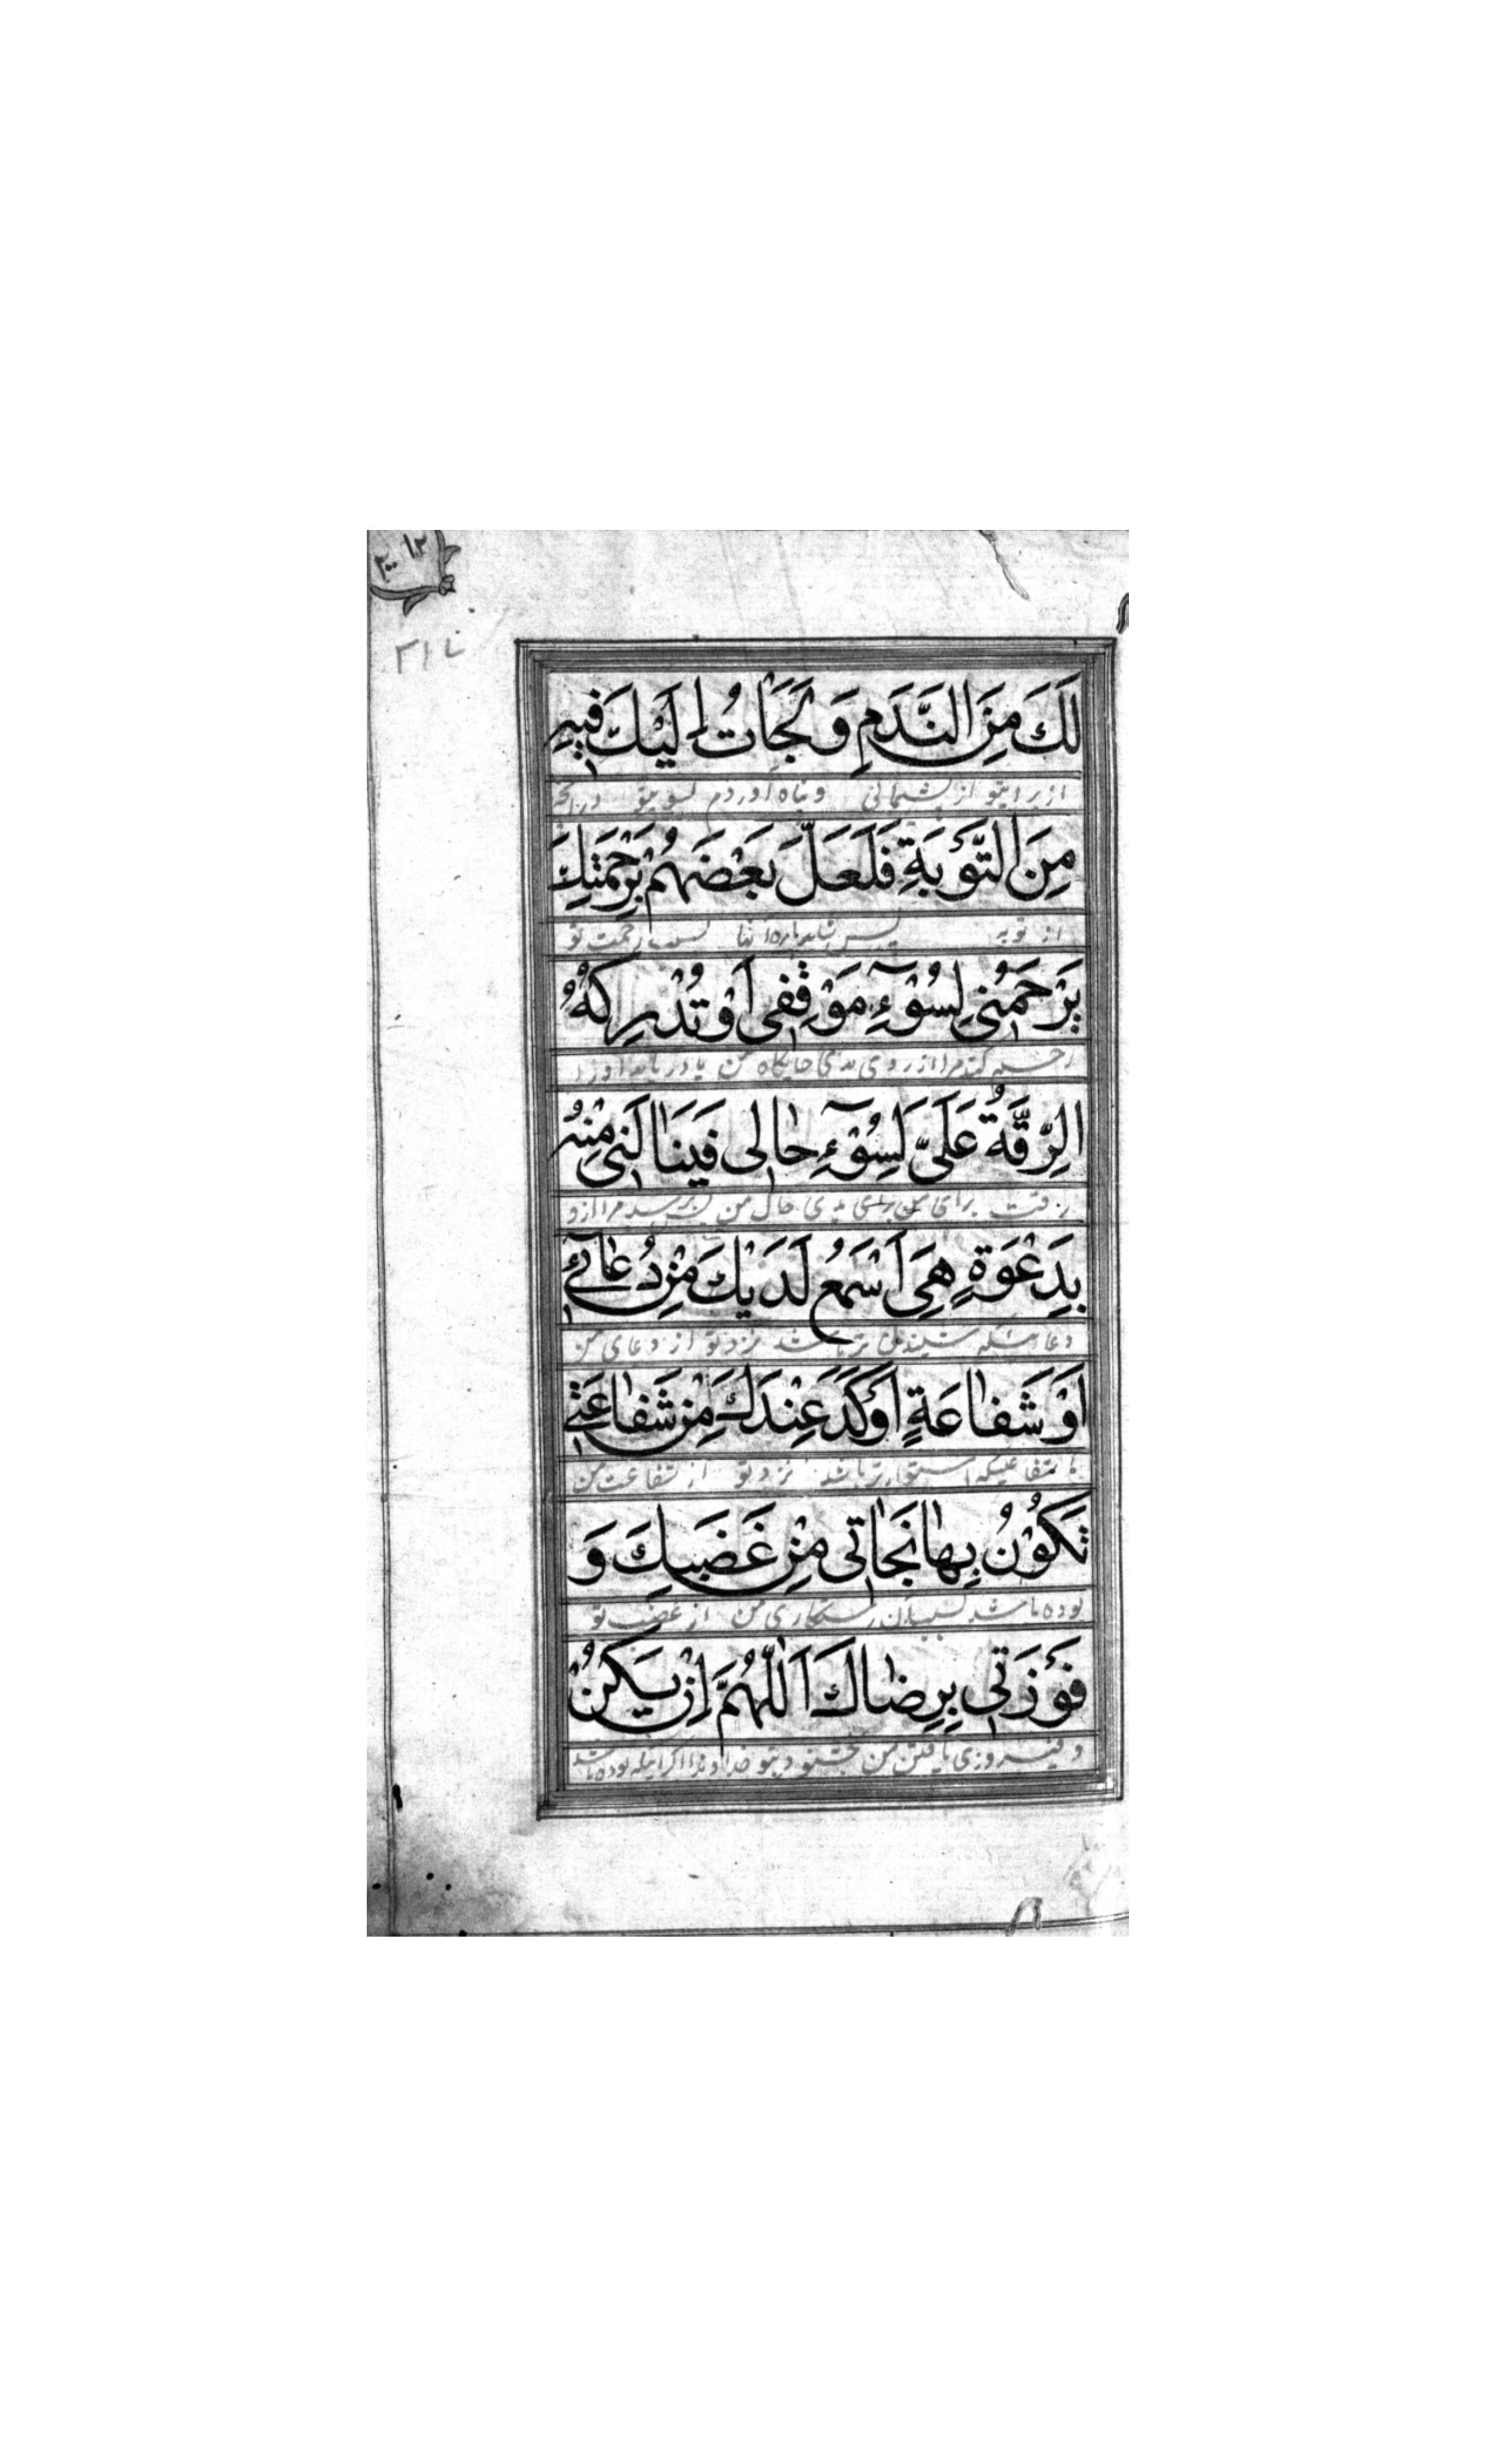 لَكَ مِنَ النَّدَمِ وَلَجَأْتُ اِلَيْكَ فِيهِ
از برای تو از پشیمانی و پناه آوردم بسوی تو در آنچه
مِنَ التَّوْبَةِ فَلَعَلَّ بَعْضَهُمْ بِرَحْمَتِكَ
از توبه پس شاید پاره آنها بسبب رحمت تو
يَرْحَمُنِي لِسُوْءِ مَوْقِفِي اَوْ تُدْرِكُهُ
کند مرا از روی بدی جایگاه من یا دریابد او را
الرِّقَّةُ عَلَيَّ لِسُوْءِ حَالِي فَيَنَالَنِي مِنْهُ
رقت برای من برای بدی حال من مرا از او
بِدَعْوَةٍ هِيَ اَسْمَعُ لَدَيْكَ مِنْ دُعَائِي
باشد نزد تو از دعای من
اَوْ شَفَاعَةٍ اَوْكَدَ عِنْدَكَ مِنْ شَفَاعَتِي
یا شفاعتیکه استوارتر باشد نزد تو از شفاعت من
تَكُوْنُ بِهَا نَجَاتِي مِنْ غَضَبِكَ وَ
بوده باشد بسبب آن رستکاری من از غضب تو
فَوْزَتِي بِرِضَاكَ اَللّهُمَّ اِنْ يَكُنْ
و فیروزی یافتن من بخشنودی تو خداوندا اگر بوده باشد